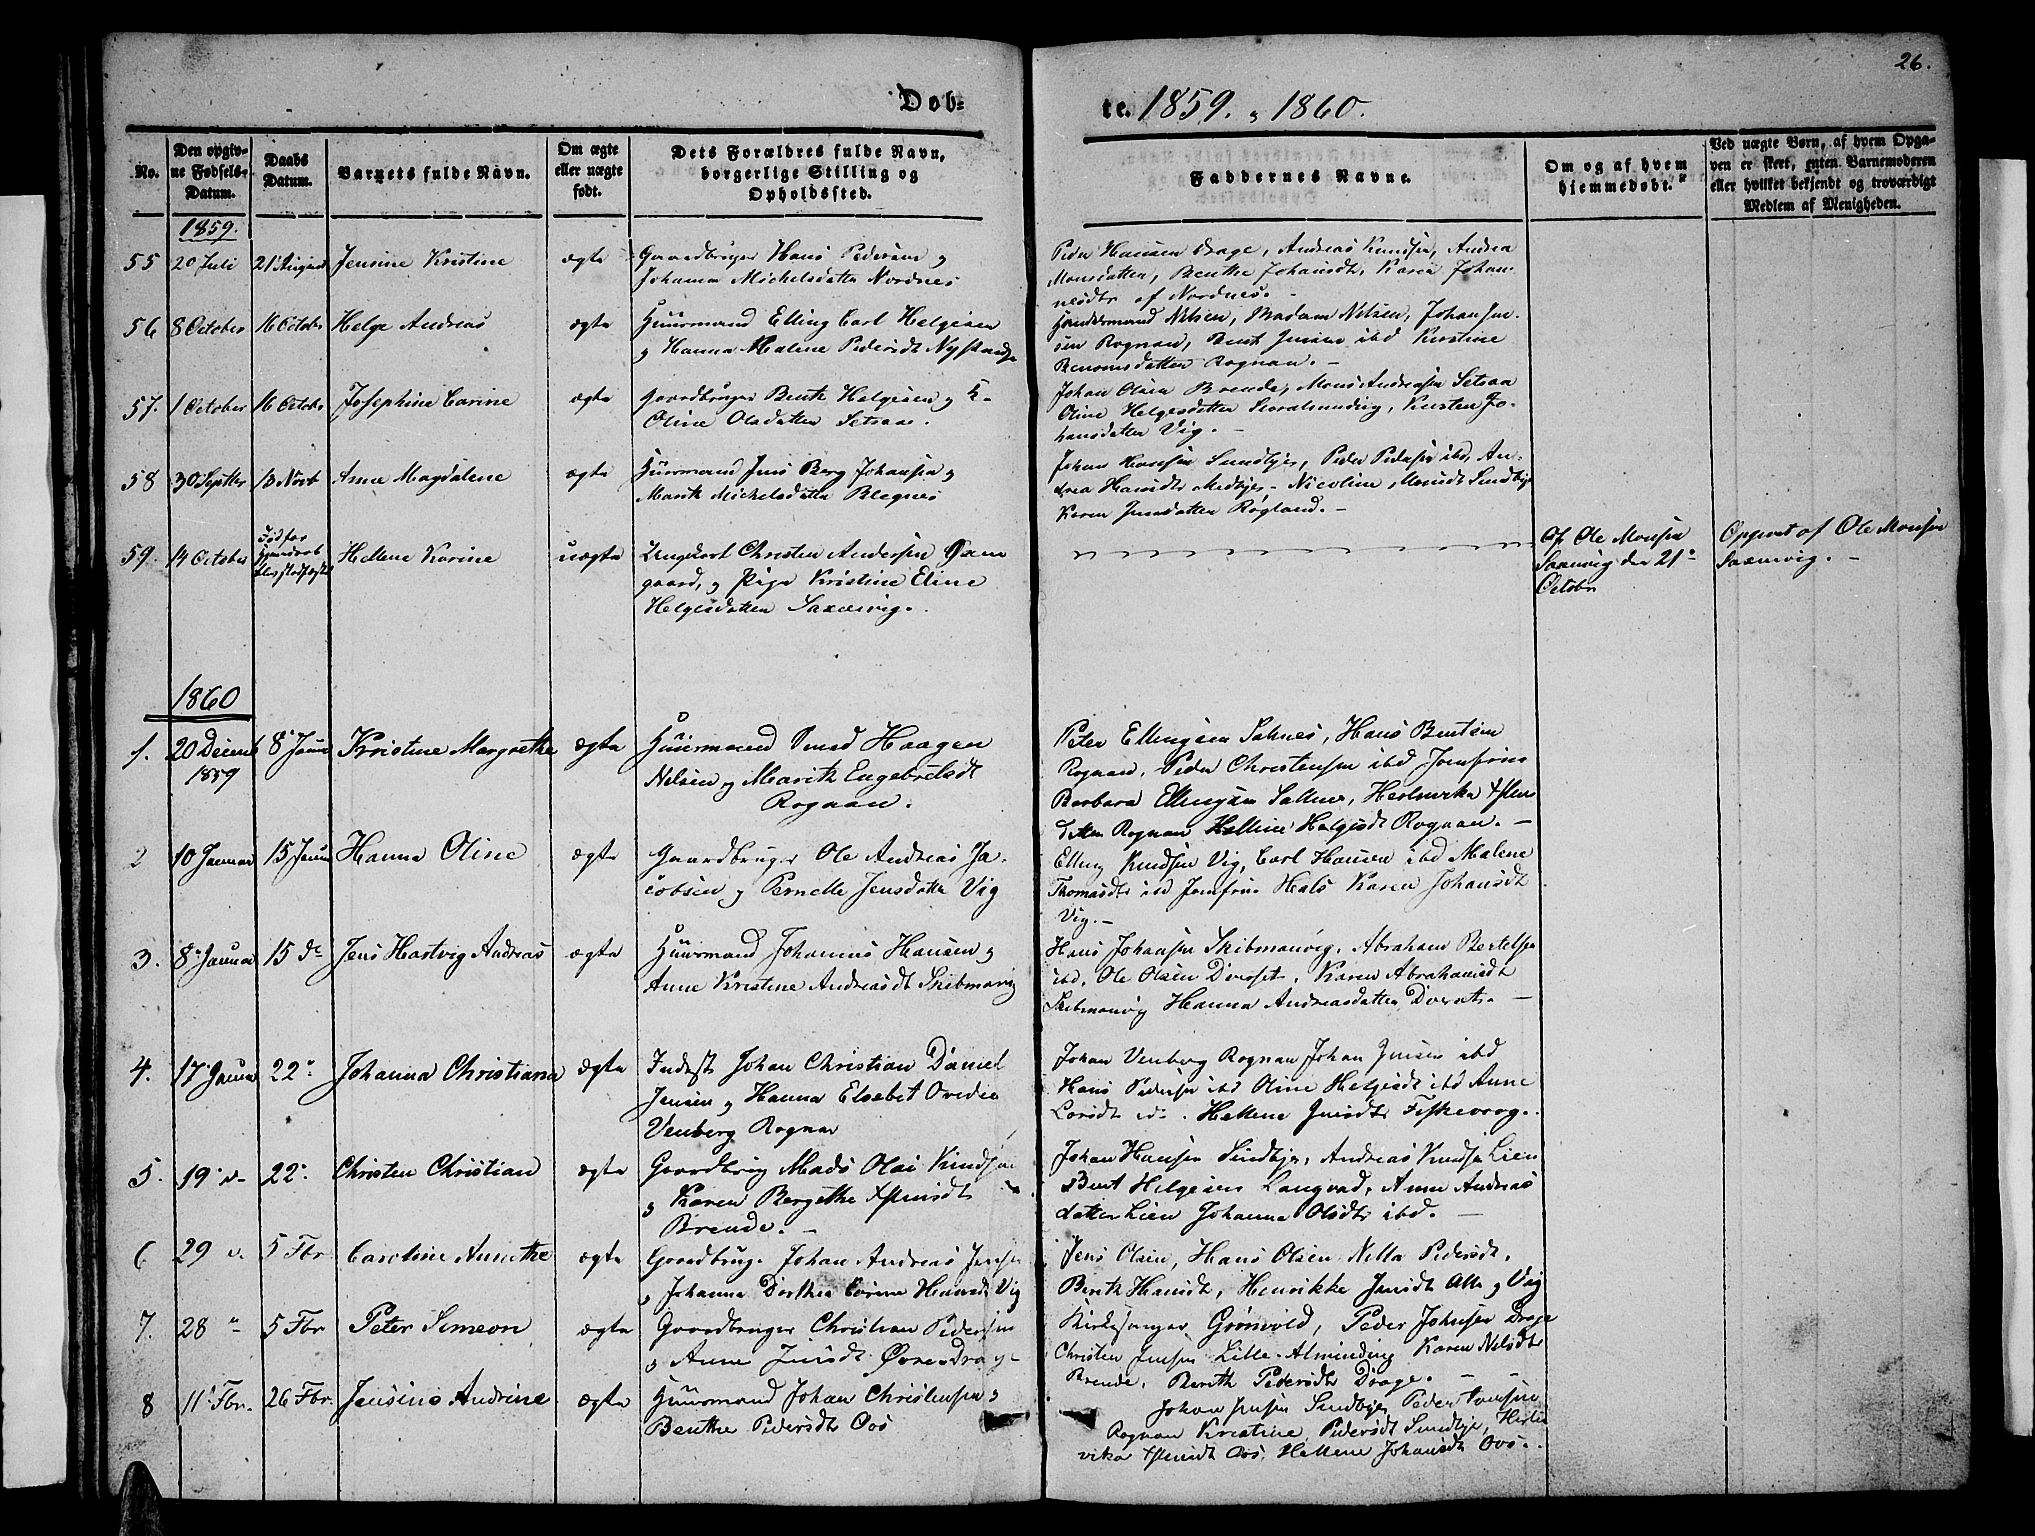 26.
Døb=
te. 1859. & 1860.
No.
Den opgiv-
ne Fødsels-
Datum.
Daabs
Datum.
Barnets fulde Navn.
Om ægte
eller uægte
født.
Dets Forældres fulde Navn,
borgerlige Stilling og
Opholdssted.
Faddernes Navne.
Om og af hvem
hjemmedøbt.
Ved uægte Børn, af hvem Opga-
ven er skeet, enten Barnemoderen
eller hvilket bekjendt og troværdigt
Medlem af Menigheden.
1859.
55 20 Juli 21 August Jensine Kristine ægte Gaardbruger Hans Pedersen og
Johanna Michelsdatter Nordnes
Peder Hansen Drage, Andreas Knudsen, Andrea
Monsdatter, Benthe Johansdt, Karen Johan-
nesdtr af Nordnes.
56 8 October 16 Octobr Helge Andreas ægte Huusmand Elling Carl Helgesen
og Hanna Malene Pedersdt
Handelsmand Nilsen, Madam Nilsen, Johan Jen-
sen Rognan, Bent Jensen ibd Kristine
Benonisdatter Rognan. -
57. 1 October 16 Octobr Josephine Carine ægte Gaardbruger Bent Helgesen og K-
Oline Olsdatter Setsaae.
Johan Olsen Brende, Mons Andreasen Setsaa
Oline Helgesdatter Kirsten Jo-
hansdatter Vig. -
58 30 Septbr 13 Novb Anne Magdalene ægte Huusmand Jens Berg Johansen og
Marit Michelsdatter
Johan Hansen Sundbye, Peder Pedersen ibd, An-
drea Hansdtr Medbye - Nicoline Monsdt Sundbye
Karen Jensdatter Røgland. -
59. 14 October Død før
Hellene Karine uægte Ungkarl Christen Andersen
gaard, og Pige Kristine Eline
Helgesdatter Saxenvig.
Af Ole Monsen
Saxenvig den 21
Octobr
Opgivet af Ole Monsen
Saxenvig. -
1860
1. 20 Decemb 8 Janu Kristine Margrethe ægte Huusmand Smed Haagen
1859 Nilsen og Marith Engebretsdt
Rognan.
Peter Ellingsen Saltnes, Hans Bentsen
Rognan, Peder Christensen ibd Jomfrue
Barbara Ellingsen Saltnes,
datter Rognan Helline Helgesdt Rognan. -
2 10 Januar 15 Janu Hanna Oline ægte Gaardbruger Ole Andreas Ja-
cobsen og Pernelle Jensdatter Vig
Elling Knudsen Vig, Carl Hansen ibd Malene
Thomasdtr ibd Jomfrue Hals Karen Johansdt
Vig. -
3. 8 Januar 15 dº Jens Hartvig Andreas ægte Huusmand Johannes Hansen og
Anne Kristine Andreasdt Skibmanvig
Hans Johansen Skibmanvig, Abraham Bertelsen
ibd, Ole Olsen Karen Abrahamsdt
Skibmanvig Hanna Andreasdatter -
4. 17 Janua 22 Johanna Christiana ægte Inderst Johan Christian Daniel
Jensen og Hanna Elsebet Ovedie
Venberg Rognan
Johan Venberg Rognan Johan Jensen ibd
Hans Pedersen ibd Oline Helgesdt ibd Anne
Larsdt Hellene Jensdtr
5. 19 22 Christen Christian ægte Gaardbrug Mads Olai Knudsen
og Karen Bergithe
Brende. -
Johan Hansen Sundbye, Andreas Knudsen Lien
Bent Helgesen Langvad, Anne Andreas
datter Lien Johanna Olsdtr ibd. -
6 29 5 Fbr Caroline Annethe ægte Gaardbrug. Johan Andreas Jensen
og Johanna Dorthea Carine Hansdt Vig
Jens Olsen, Hans Olsen Nella Pedersdt,
Berith Hansdt, Henrikke Jensdt Alle og Vig
7. 28 " 5 Fbr Peter Simeon ægte Gaardbruger Christian Pedersen
og Anne Jensdt Øvre-Drage
Kirkesanger Grønvold, Peder Johnsen Drage
Christen Jensen Lille-Alminding Karen Nilsdtr
Brende, Berith Pedersdtr Drage. -
8 11 Fbr. 26 Fbr. Jensine Andrine ægte Huusmand Johan Christensen og
Benthe Pedersdtr Oos
Johan Jensen Sundbye Peder
Rognan Kristine Pedersdt Sundbye,
Oos, Hellene Johansdt Oos.